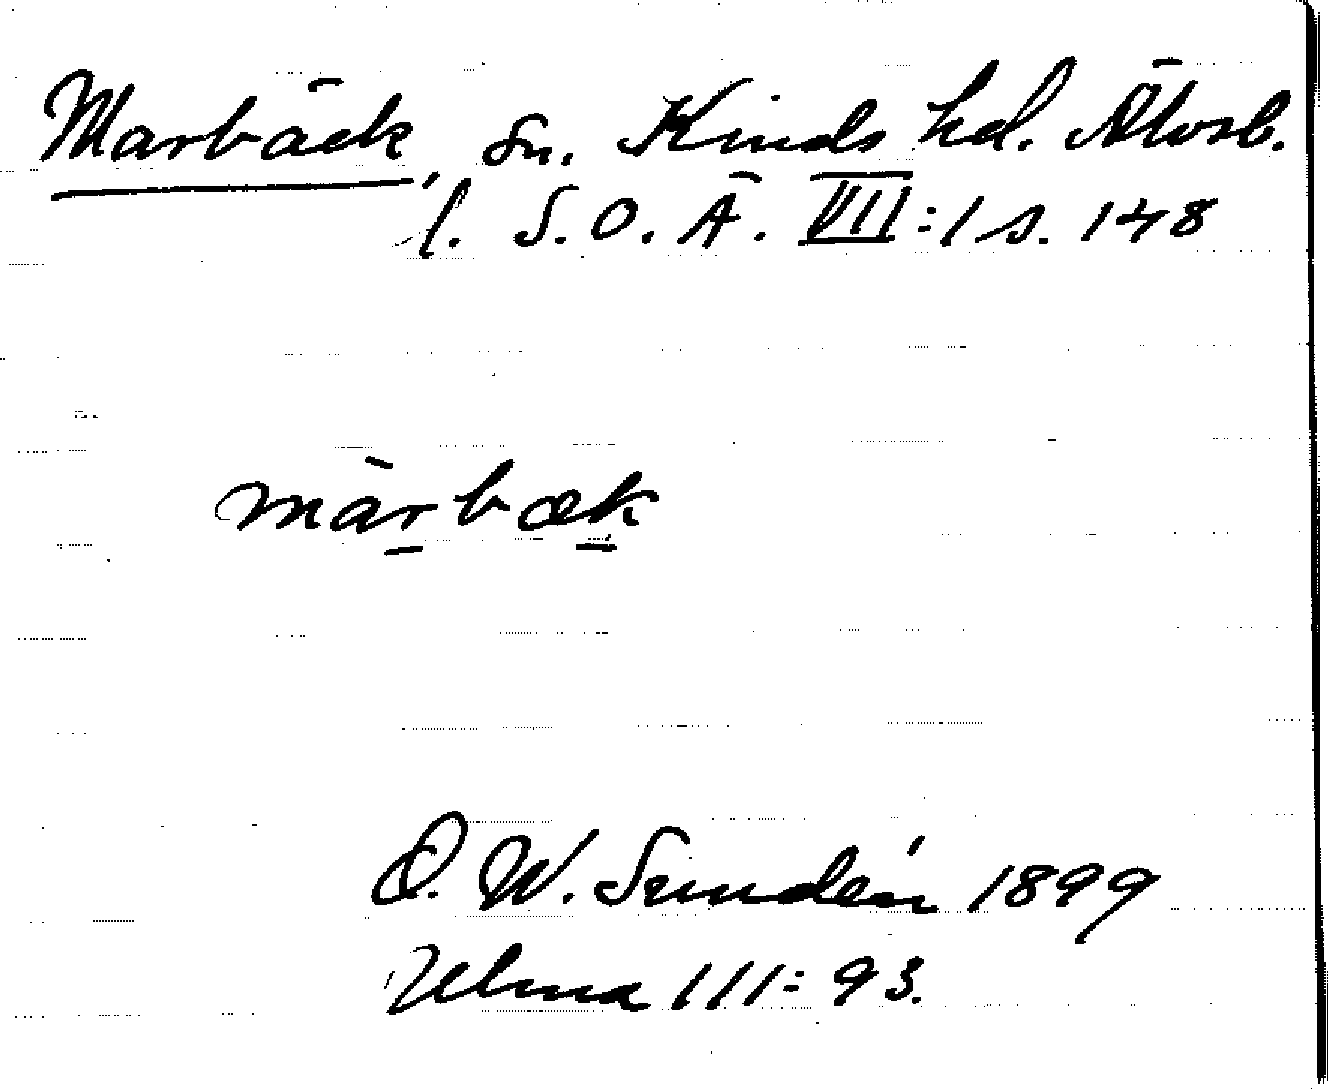 Marbäck, sn. Kinds hd. Älvsb.
l. S.O.Ä. VII:1 s. 148
màrbæk
D. W. Sundén 1899
Ulma 111:93.